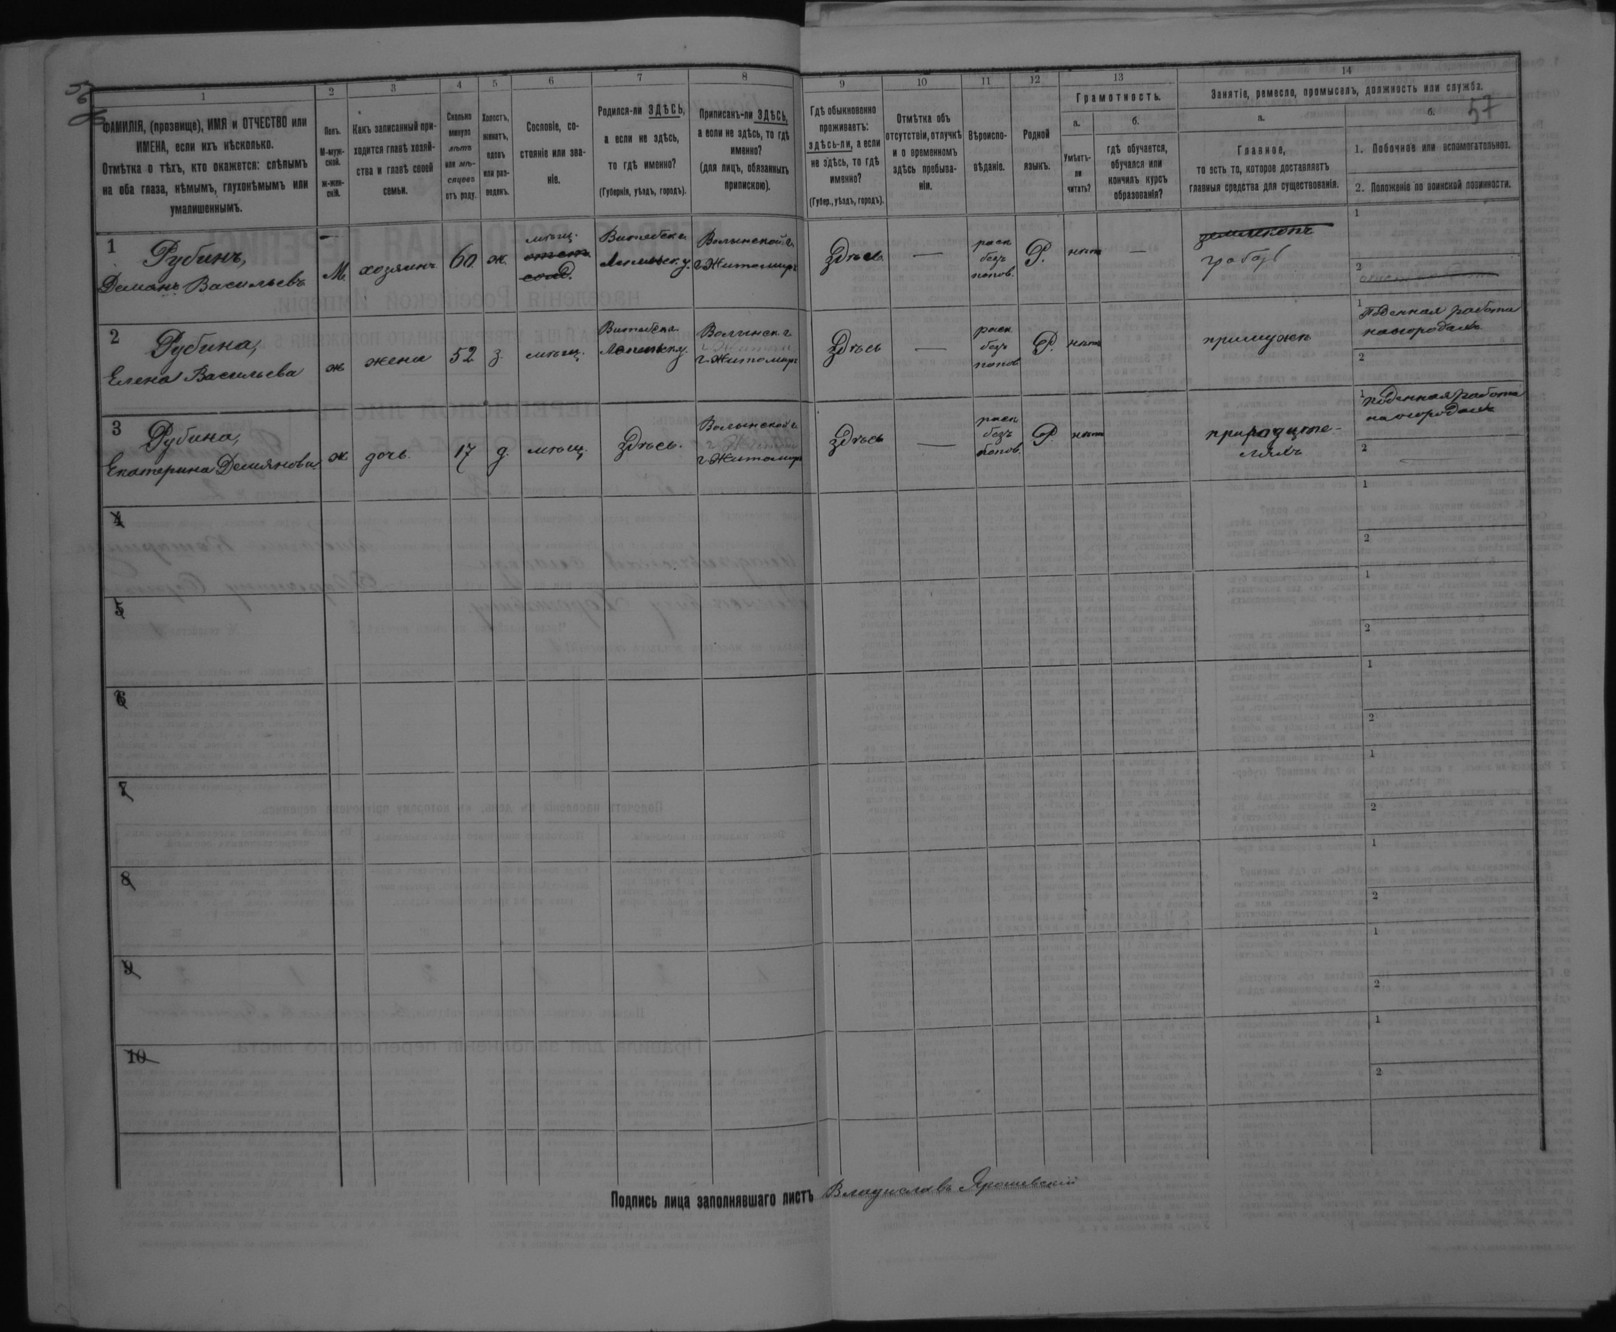 57
1
2
3
4
5
6
7
8
9
10
11
12
13
14
ФАМИЛІЯ, (прозвище), ИМЯ и ОТЧЕСТВО или
ИМЕНА, если ихъ нѣсколько.
Отмѣтка о тѣхъ, кто окажется: слѣпымъ
на оба глаза, нѣмымъ, глухонѣмымъ или
умалишеннымъ.
Полъ.
М-муж-
ской.
ж-жен-
скій.
Какъ записанный при-
ходится главѣ хозяй-
ства и главѣ своей
семьи.
Сколько
минуло
лѣтъ
или мѣ-
сяцевъ
отъ роду.
Холостъ,
женатъ,
вдовъ
или раз-
веденъ.
Сословіе, со-
стояніе или зва-
ніе.
Родился-ли ЗДѢСЬ,
а если не здѣсь,
то гдѣ именно?
(Губернія, уѣздъ, городъ).
Приписанъ-ли ЗДѢСЬ,
а если не здѣсь, то гдѣ
именно?
(для лицъ, обязанныхъ
припискою).
Гдѣ обыкновенно
проживаетъ:
здѣсь-ли, а если
не здѣсь, то гдѣ
именно?
(Губер., уѣздъ, городъ).
Отмѣтка объ
отсутствіи, отлучкѣ
и о временномъ
здѣсь пребыва-
ніи.
Вѣроиспо-
вѣданіе.
Родной
языкъ.
Грамотность.
а.
Умѣетъ-
ли
читать?
б.
гдѣ обучается,
обучался или
кончилъ курсъ
образованія?
Занятіе, ремесло, промыселъ, должность или служба.
а.
Главное,
то есть то, которое доставляетъ
главныя средства для существованія.
б.
1. Побочное или вспомогательное.
2. Положеніе по воинской повинности.
1
Рубинъ,
Демянъ Васильевъ
М
хозяинъ
60
ж.
мѣщ.
Витебск г.
Лепельск. у.
Волынской г.
г. Житомиръ
Здѣсь
—
раск
безъ
попов.
Р.
нѣтъ
—
землекопъ
1
2
2
Рубина,
Елена Васильева
ж
жена
52
з.
мѣщ.
Витебска
Лепельск у.
Волынск г.
г. Житомиръ
Здѣсь
—
раск
безъ
попов
Р.
нѣтъ
примужъ
1 поденная работа
на огородахъ
2
3
Рубина,
Екатерина Демянова
ж
дочь
17
д.
мѣщ.
Здѣсь.
Волынской г
г. Житомиръ
Здѣсь
—
раск
безъ
попов.
Р.
нѣтъ
при родите-
ляхъ
1 поденная работа
на огородахъ
2
4
1
2
5
1
2
6
1
2
7
1
2
8
1
2
9
1
2
10
1
2
Подпись лица заполнявшаго листъ Владиславъ Ярошевскій